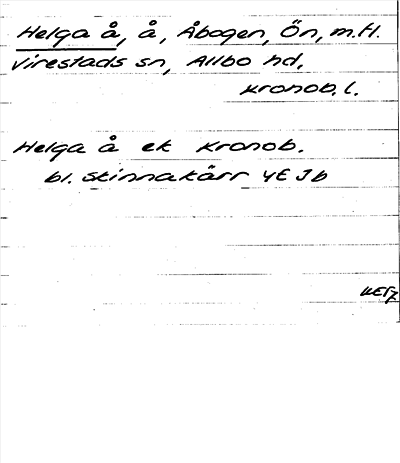 Helga å, å, Åbogen, Ön, m.fl.
Virestads sn, Allbo hd,
Kronob. l.
Helga å ek Kronob.
bl. Skinnakärr 4E Jb